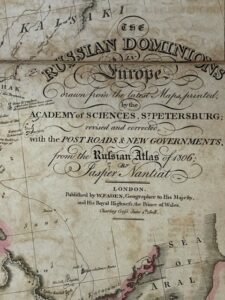 KALSAKI
THE
RUSSIAN DOMINIONS
in
Europe
drawn from the latest Maps, printed
by the
ACADEMY OF SCIENCES, ST. PETERSBURG;
revised and corrected
with the POST ROADS & NEW GOVERNMENTS,
from the Russian Atlas of 1806;
BY
Jasper Nantiat
LONDON.
Published by W. FADEN, Geographer to His Majesty,
and His Royal Highness, the Prince of Wales.
Charing Cross June
SEA
OF
ARAL